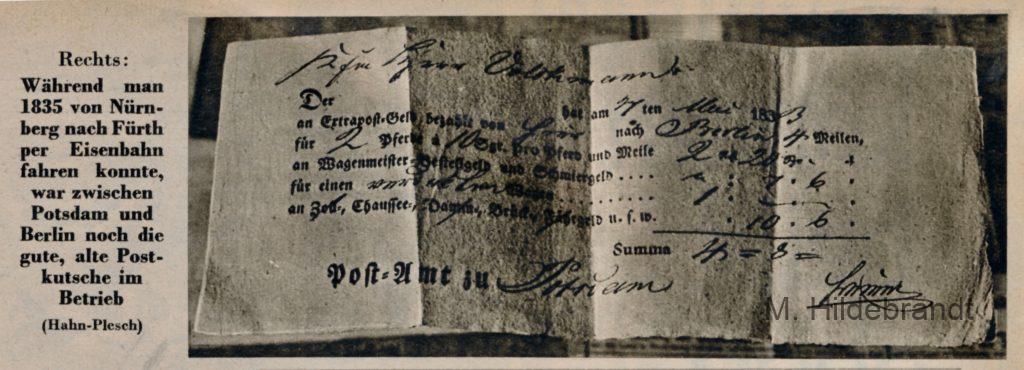 Rechts:
Während man
1835 von Nürn-
berg nach Fürth
per Eisenbahn
fahren konnte,
war zwischen
Potsdam und
Berlin noch die
gute, alte Post-
kutsche im
Betrieb
(Hahn-Plesch)
Herr
Der hat am 7 ten Mai 183
an Extrapost-Geld, bezahlt von nach Berlin 4 Meilen,
für 2 Pferde à 10 Sgr. pro Pferd und Meile 2
an Wagenmeister-Bestellgeld und Schmiergeld . . . . 7 . 6 .
für einen Wagen . . . . . . 1
an Zoll-, Chaussee-, Damm-, Brück-, Fährgeld u. s. w. 10 . 6 .
Summa 4 = 8 =
Post-Amt zu Potsdam
M. Hildebrandt